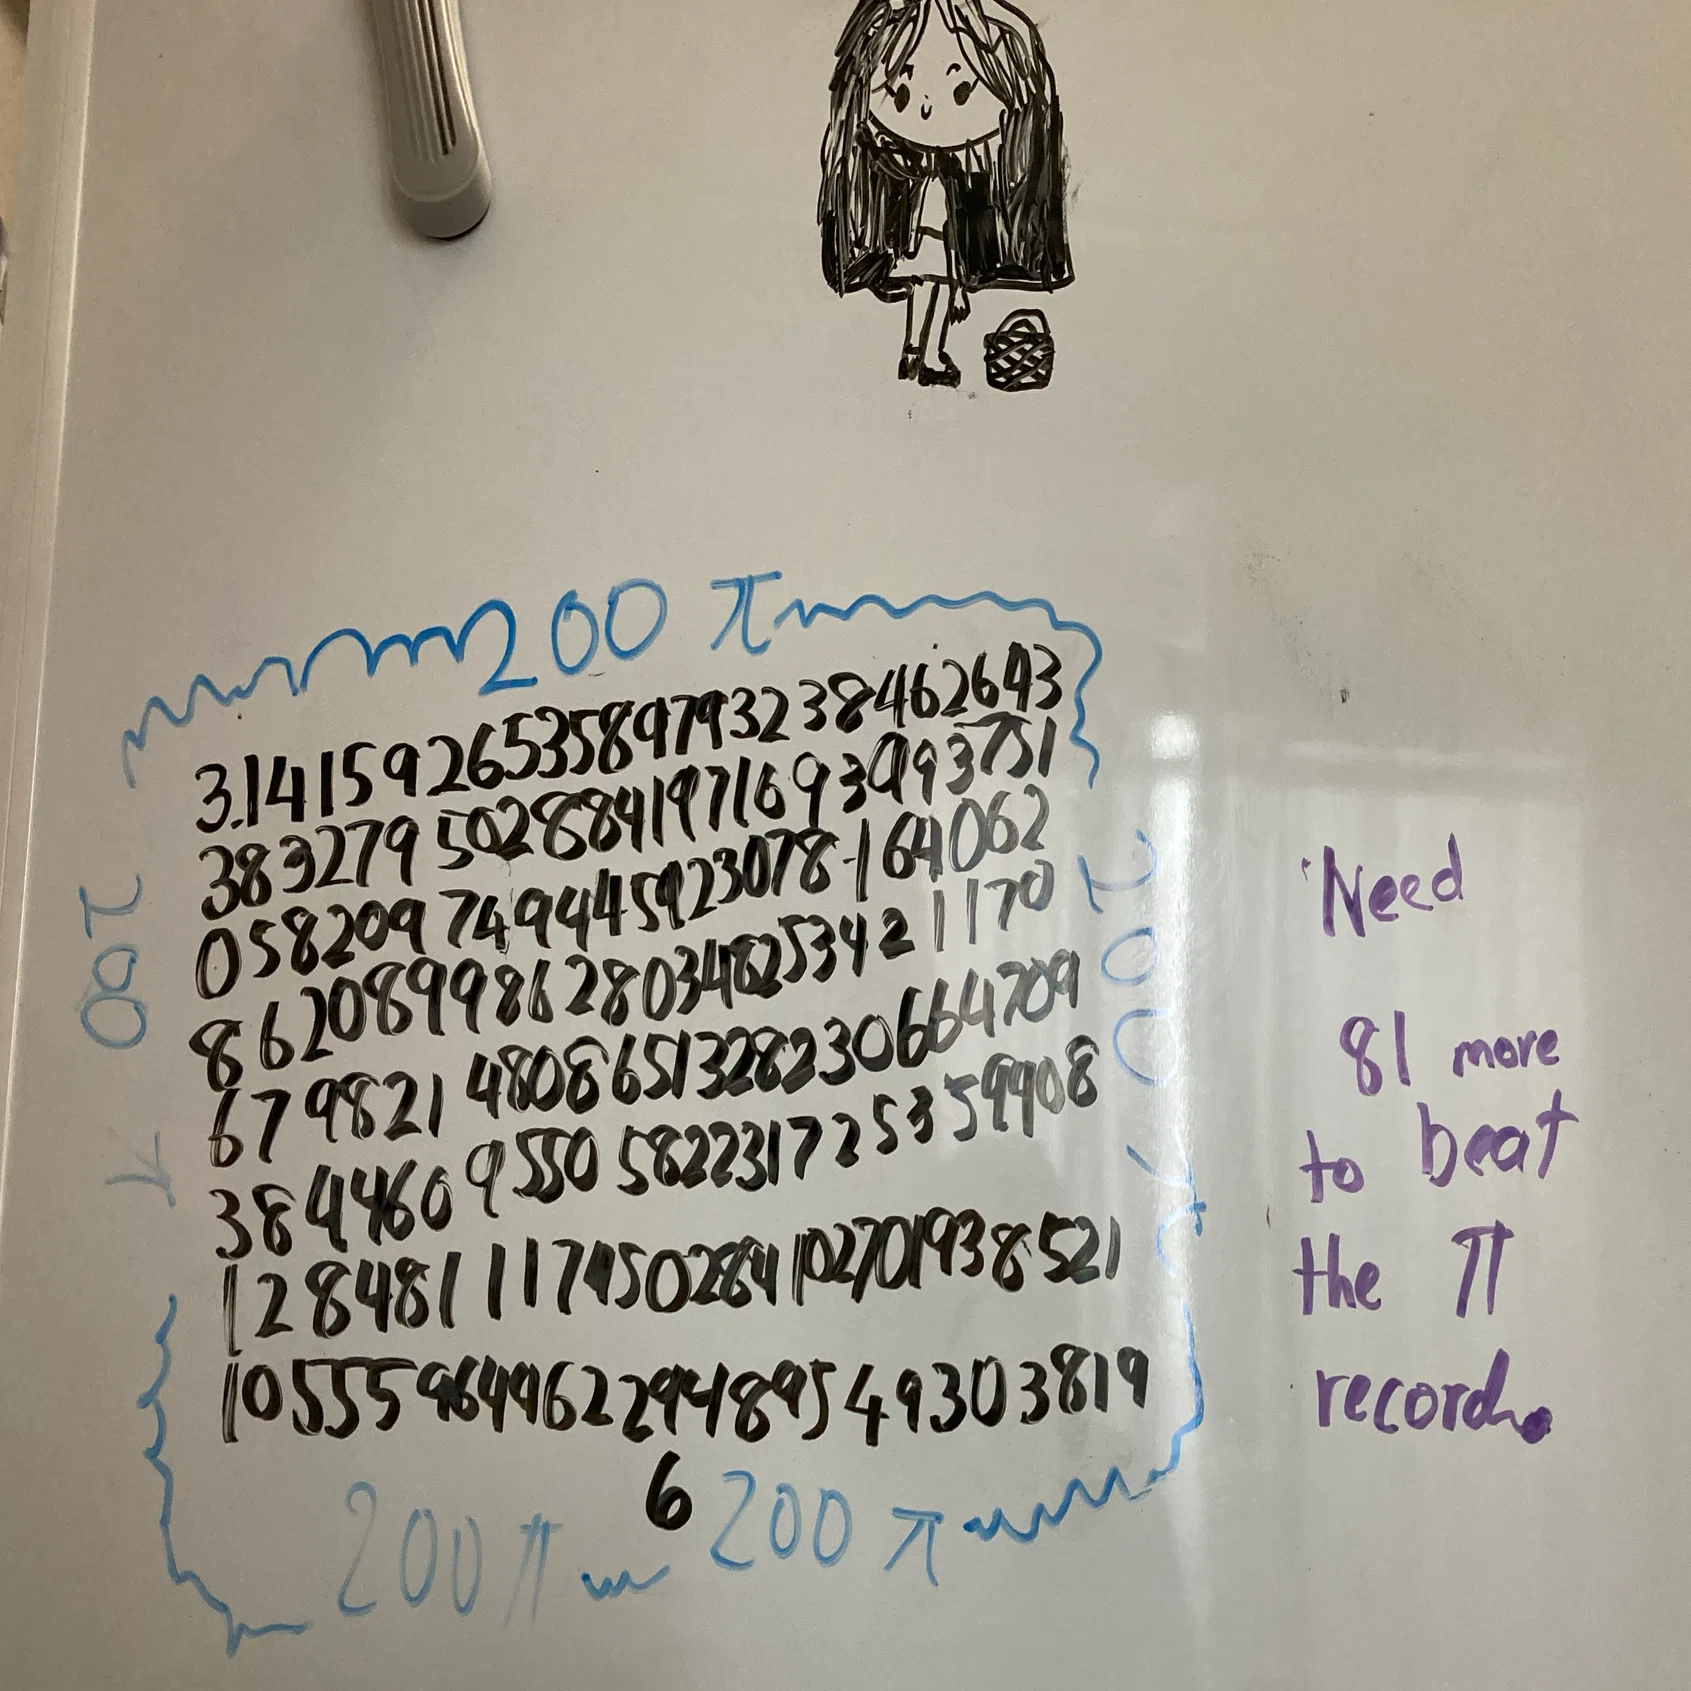 200 π
3.141592653589793238462643
383279 5028841971693993751
058209 749445923078164062
862089986280348253421170
679821 4808651328230664709
384460 9550 582231725359408
128481117450284102701938521
1055596446229489549303819
6
200 π
200 π
200 π
200 π
Need
81 more
to beat
the π
record.